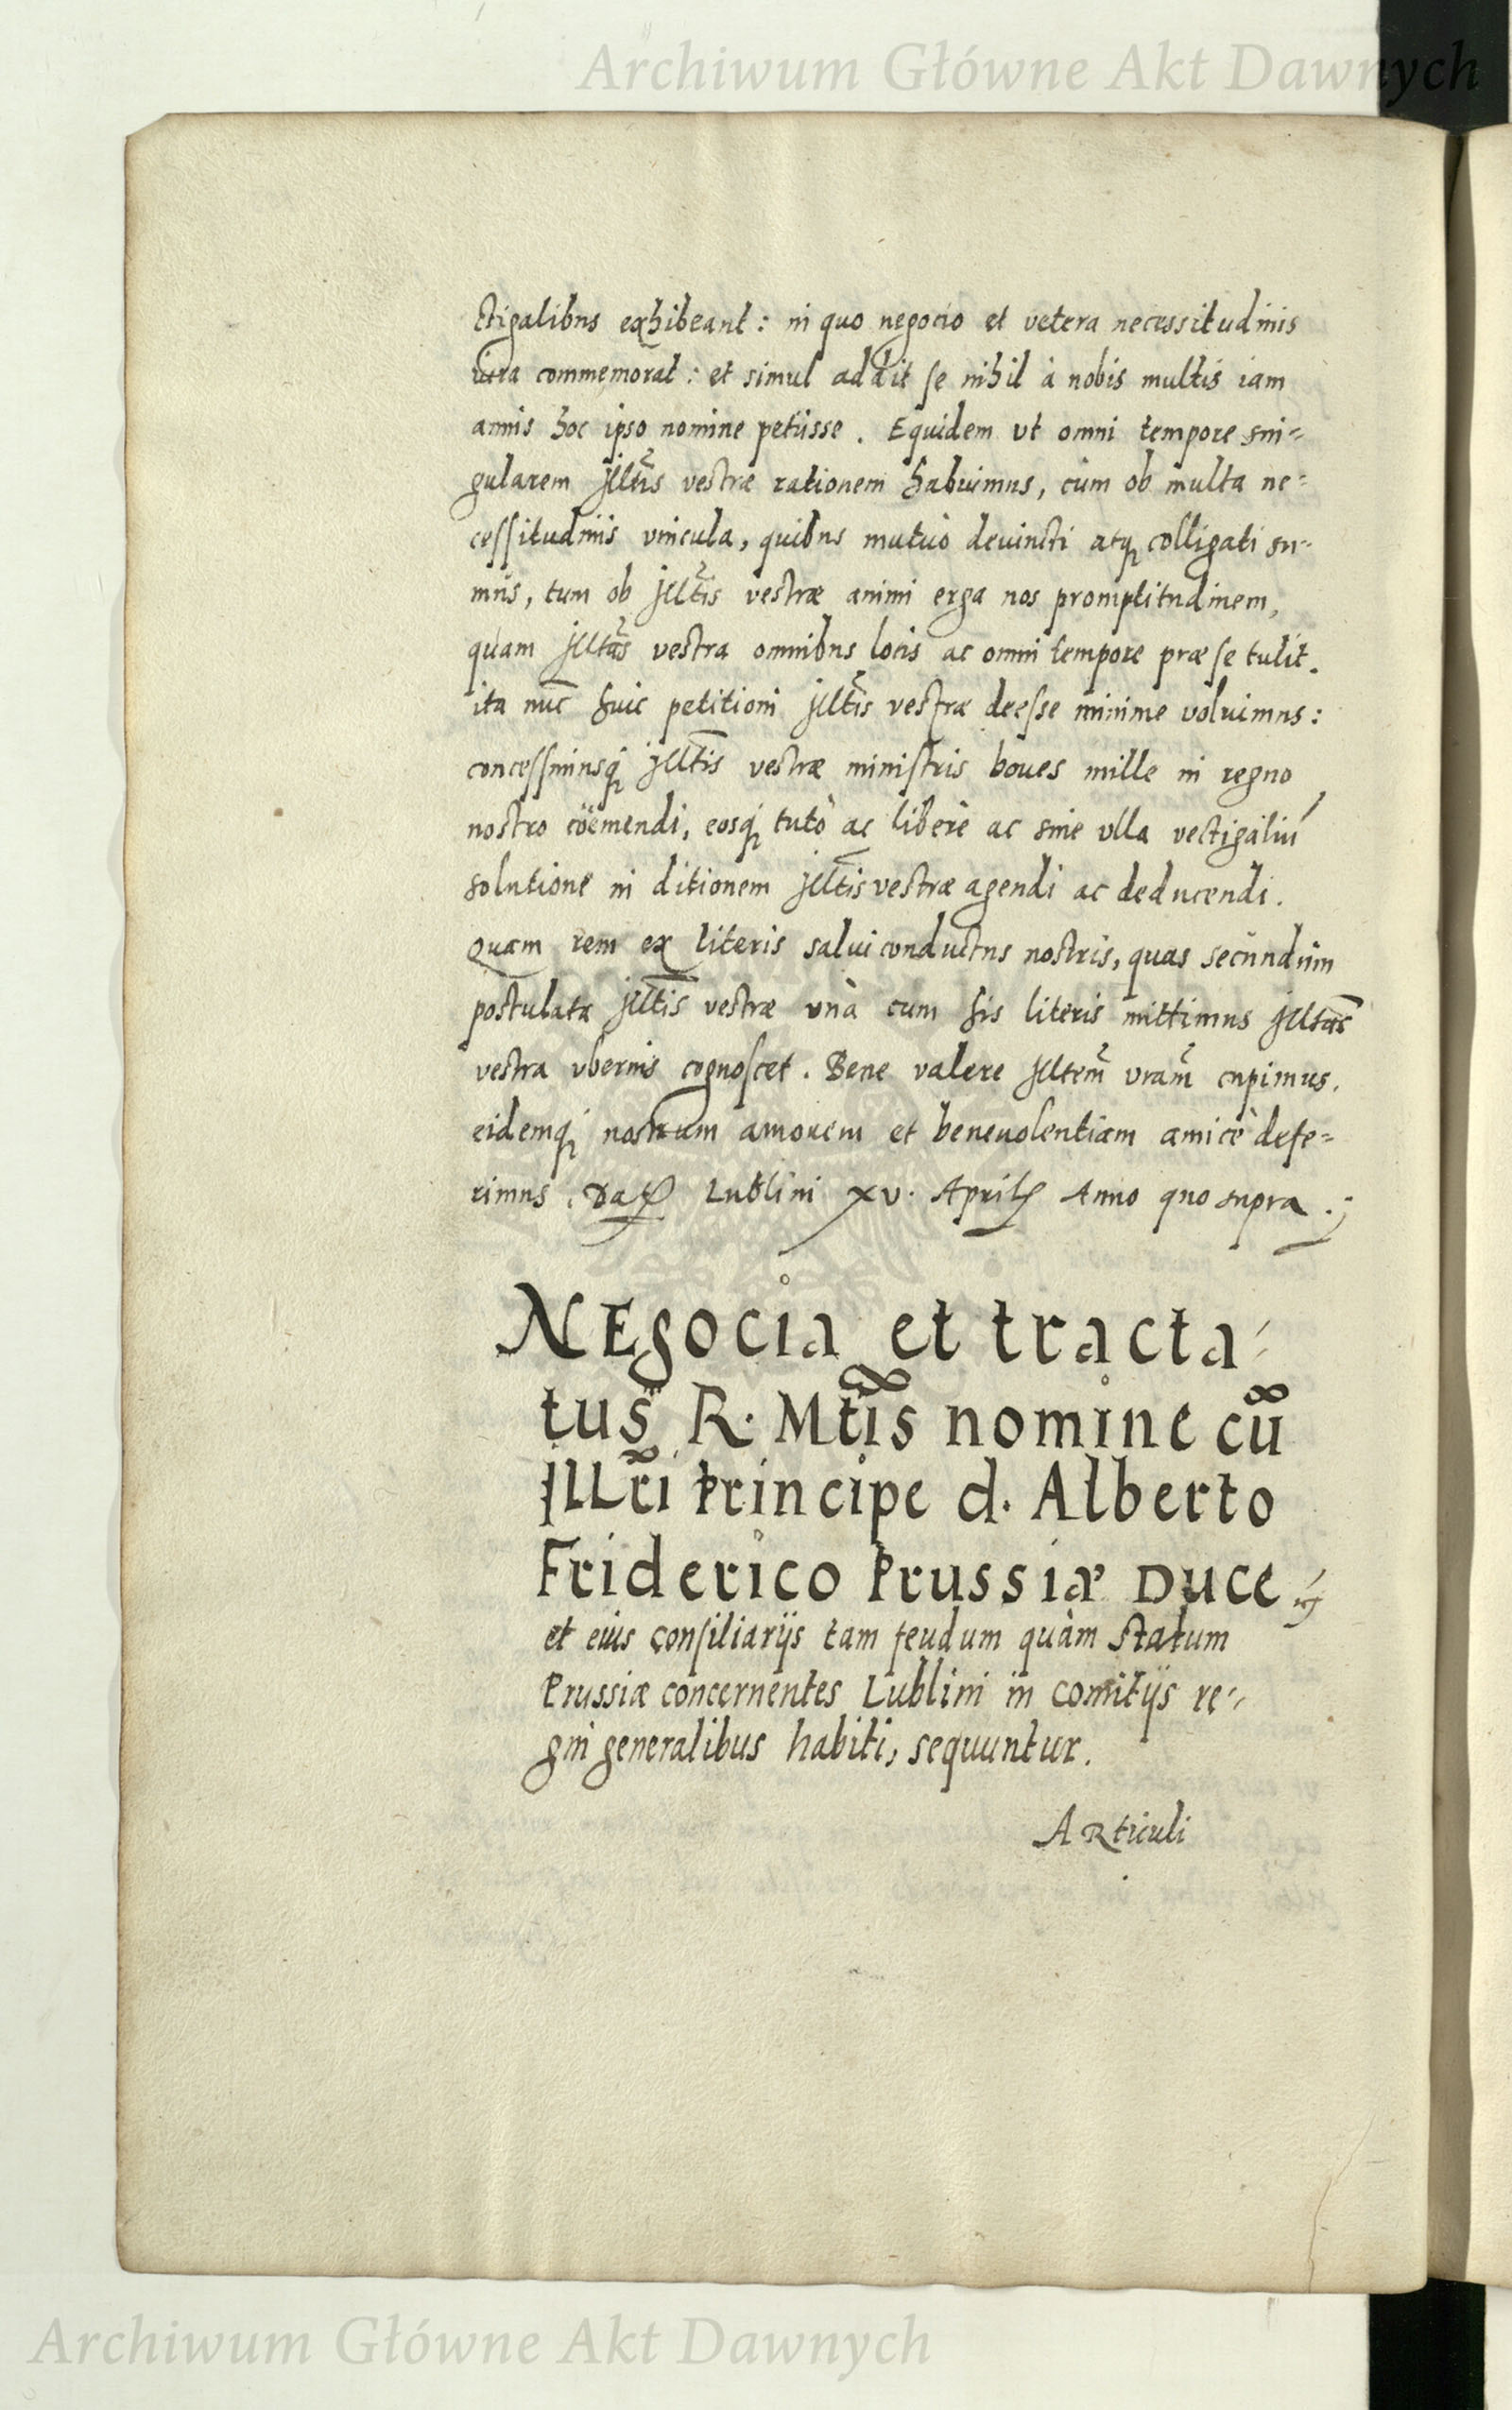 Archiwum Główne Akt Dawnych
ctigalibus exhibeant: in quo negocio et vetera necessitudinis
iura commemorat: et simul addit se nihil à nobis multis iam
annis hoc ipso nomine petiisse. Equidem ut omni tempore sin=
gularem Illtis vestræ rationem habuimus, cùm ob multa ne=
cessitudinis vincula, quibus mutuò devincti atq colligati su=
mus, tum ob Illtis vestræ animi erga nos promptitudinem,
quam Illtas vestra omnibus locis ac omni tempore præ se tulit.
ita nuc huic petitioni Illtis vestræ deesse minime voluimus:
concessimusq Illtis vestræ ministris boves mille in regno
nostro coëmendi, eosq tutò ac liberè ac sine ulla vectigaliu
solutione in ditionem Illtis vestræ agendi ac deducendi.
Quam rem ex literis salviconductus nostris, quas secundum
postulata Illtis vestræ unà cum his literis mittimus Illtas
vestra uberius cognoscet. Bene valere Illtem vram cupimus.
eidemq nostrum amorem et benevolentiam amicè defe=
rimus. Dat Lublini XV. Aprilis Anno quo supra.
NEgocia et tracta=
tus R. Mtis nomine cū
Illri Principe d. Alberto
Friderico Prussiæ Duce
et eius consiliarijs tam feudum quàm statum
Prussiæ concernentes Lublini in comitijs re=
gni generalibus habiti, sequuntur.
ARticuli
Archiwum Główne Akt Dawnych